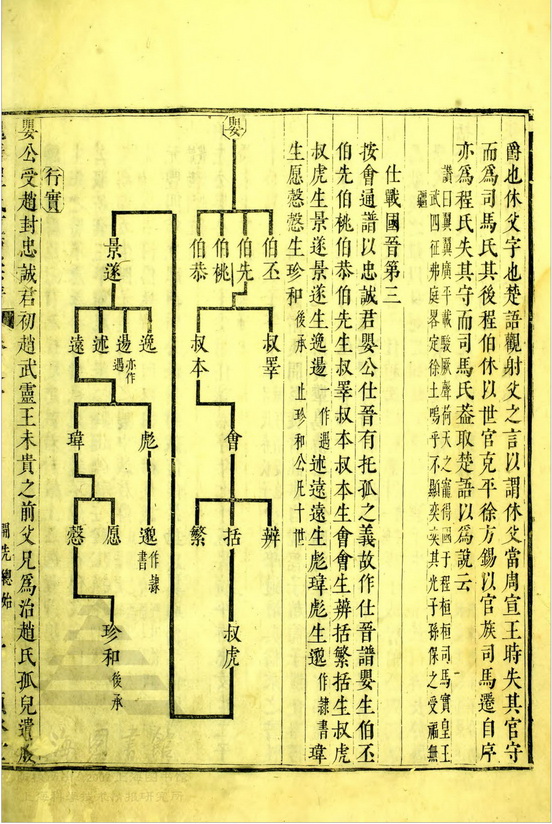 爵也休父字也楚語觀射父之言以謂休父當周宣王時失其官守
而爲司馬氏其後程伯休以世官克平徐方錫以官族司馬遷自序
亦爲程氏失其守而司馬氏葢取楚語以爲說云
讃曰翼翼廣平載駿厥聲荷天之寵得國于程桓桓司馬實皇王
武四征弗庭畧定徐土嗚乎不顯奕奕其光子孫保之受福無
疆
仕戰國晉第三
按會通譜以忠誠君嬰公仕晉有托孤之義故作仕晉譜嬰生伯丕
伯先伯桃伯恭伯先生叔睪叔本叔本生會會生辨括繁括生叔虎
叔虎生景遂景遂生逸逿一作遇述遠遠生彪瑋彪生邈作隸書瑋
生愿慤慤生珍和後承止珍和公凡十世
嬰
伯丕
伯先
伯桃
伯恭
叔睪
叔本
會
辨
括
繁
叔虎
景遂
逸
逿亦作遇
述
遠
彪
瑋
邈作隸書
愿
慤
珍和後承
行實
嬰公受趙封忠誠君初趙武靈王未貴之前父兄爲治趙氏孤兒遺腹
開先總始